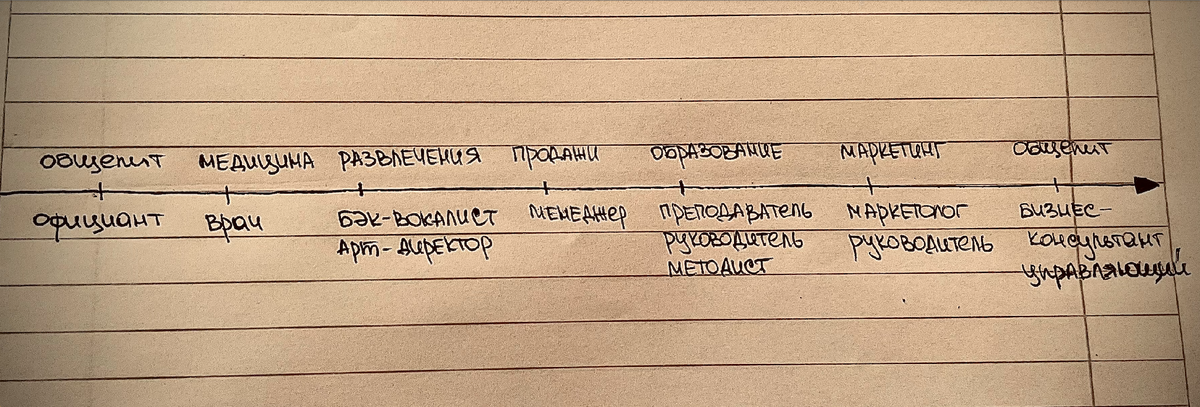 общепит МЕДИЦИНА РАЗВЛЕЧЕНИЯ ПРОДАЖИ ОБРАЗОВАНИЕ МАРКЕТИНГ общепит
официант врач БЭК-ВОКАЛИСТ МЕНЕДЖЕР ПРЕПОДАВАТЕЛЬ МАРКЕТОЛОГ БИЗНЕС-
АРТ-ДИРЕКТОР РУКОВОДИТЕЛЬ РУКОВОДИТЕЛЬ консультант
МЕТОДИСТ управляющий